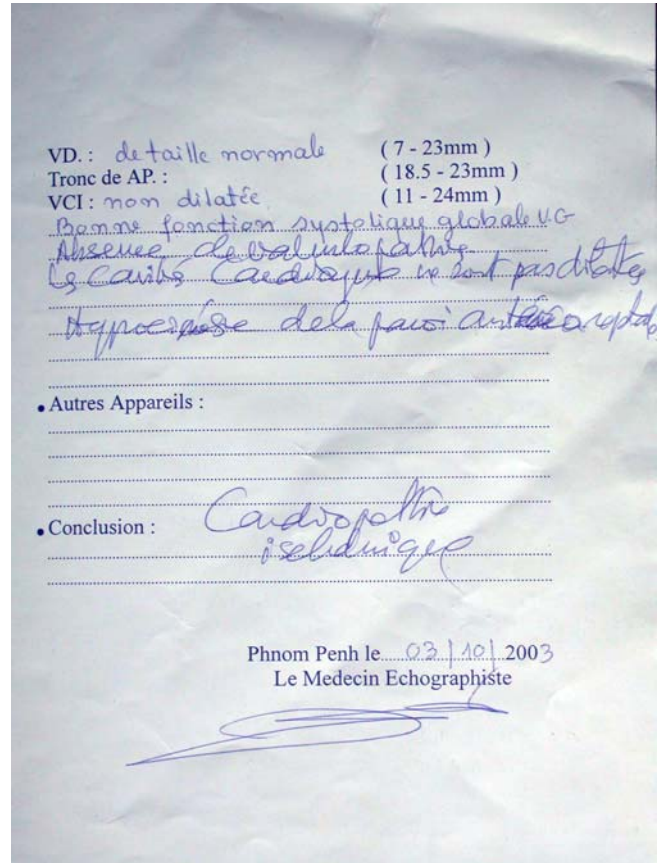 VD. : de taille normale (7 - 23mm)
Tronc de AP. : (18.5 - 23mm)
VCI : non dilatée (11 - 24mm)
Bonne fonction systolique globale VG
Absence de valvulopathie
Les cavités Cardiaques ne sont pas dilatés
Hypocinésie de la paroi antéro septale
• Autres Appareils :
• Conclusion : Cardiopathie
ischémique
Phnom Penh le 03/10/2003
Le Medecin Echographiste